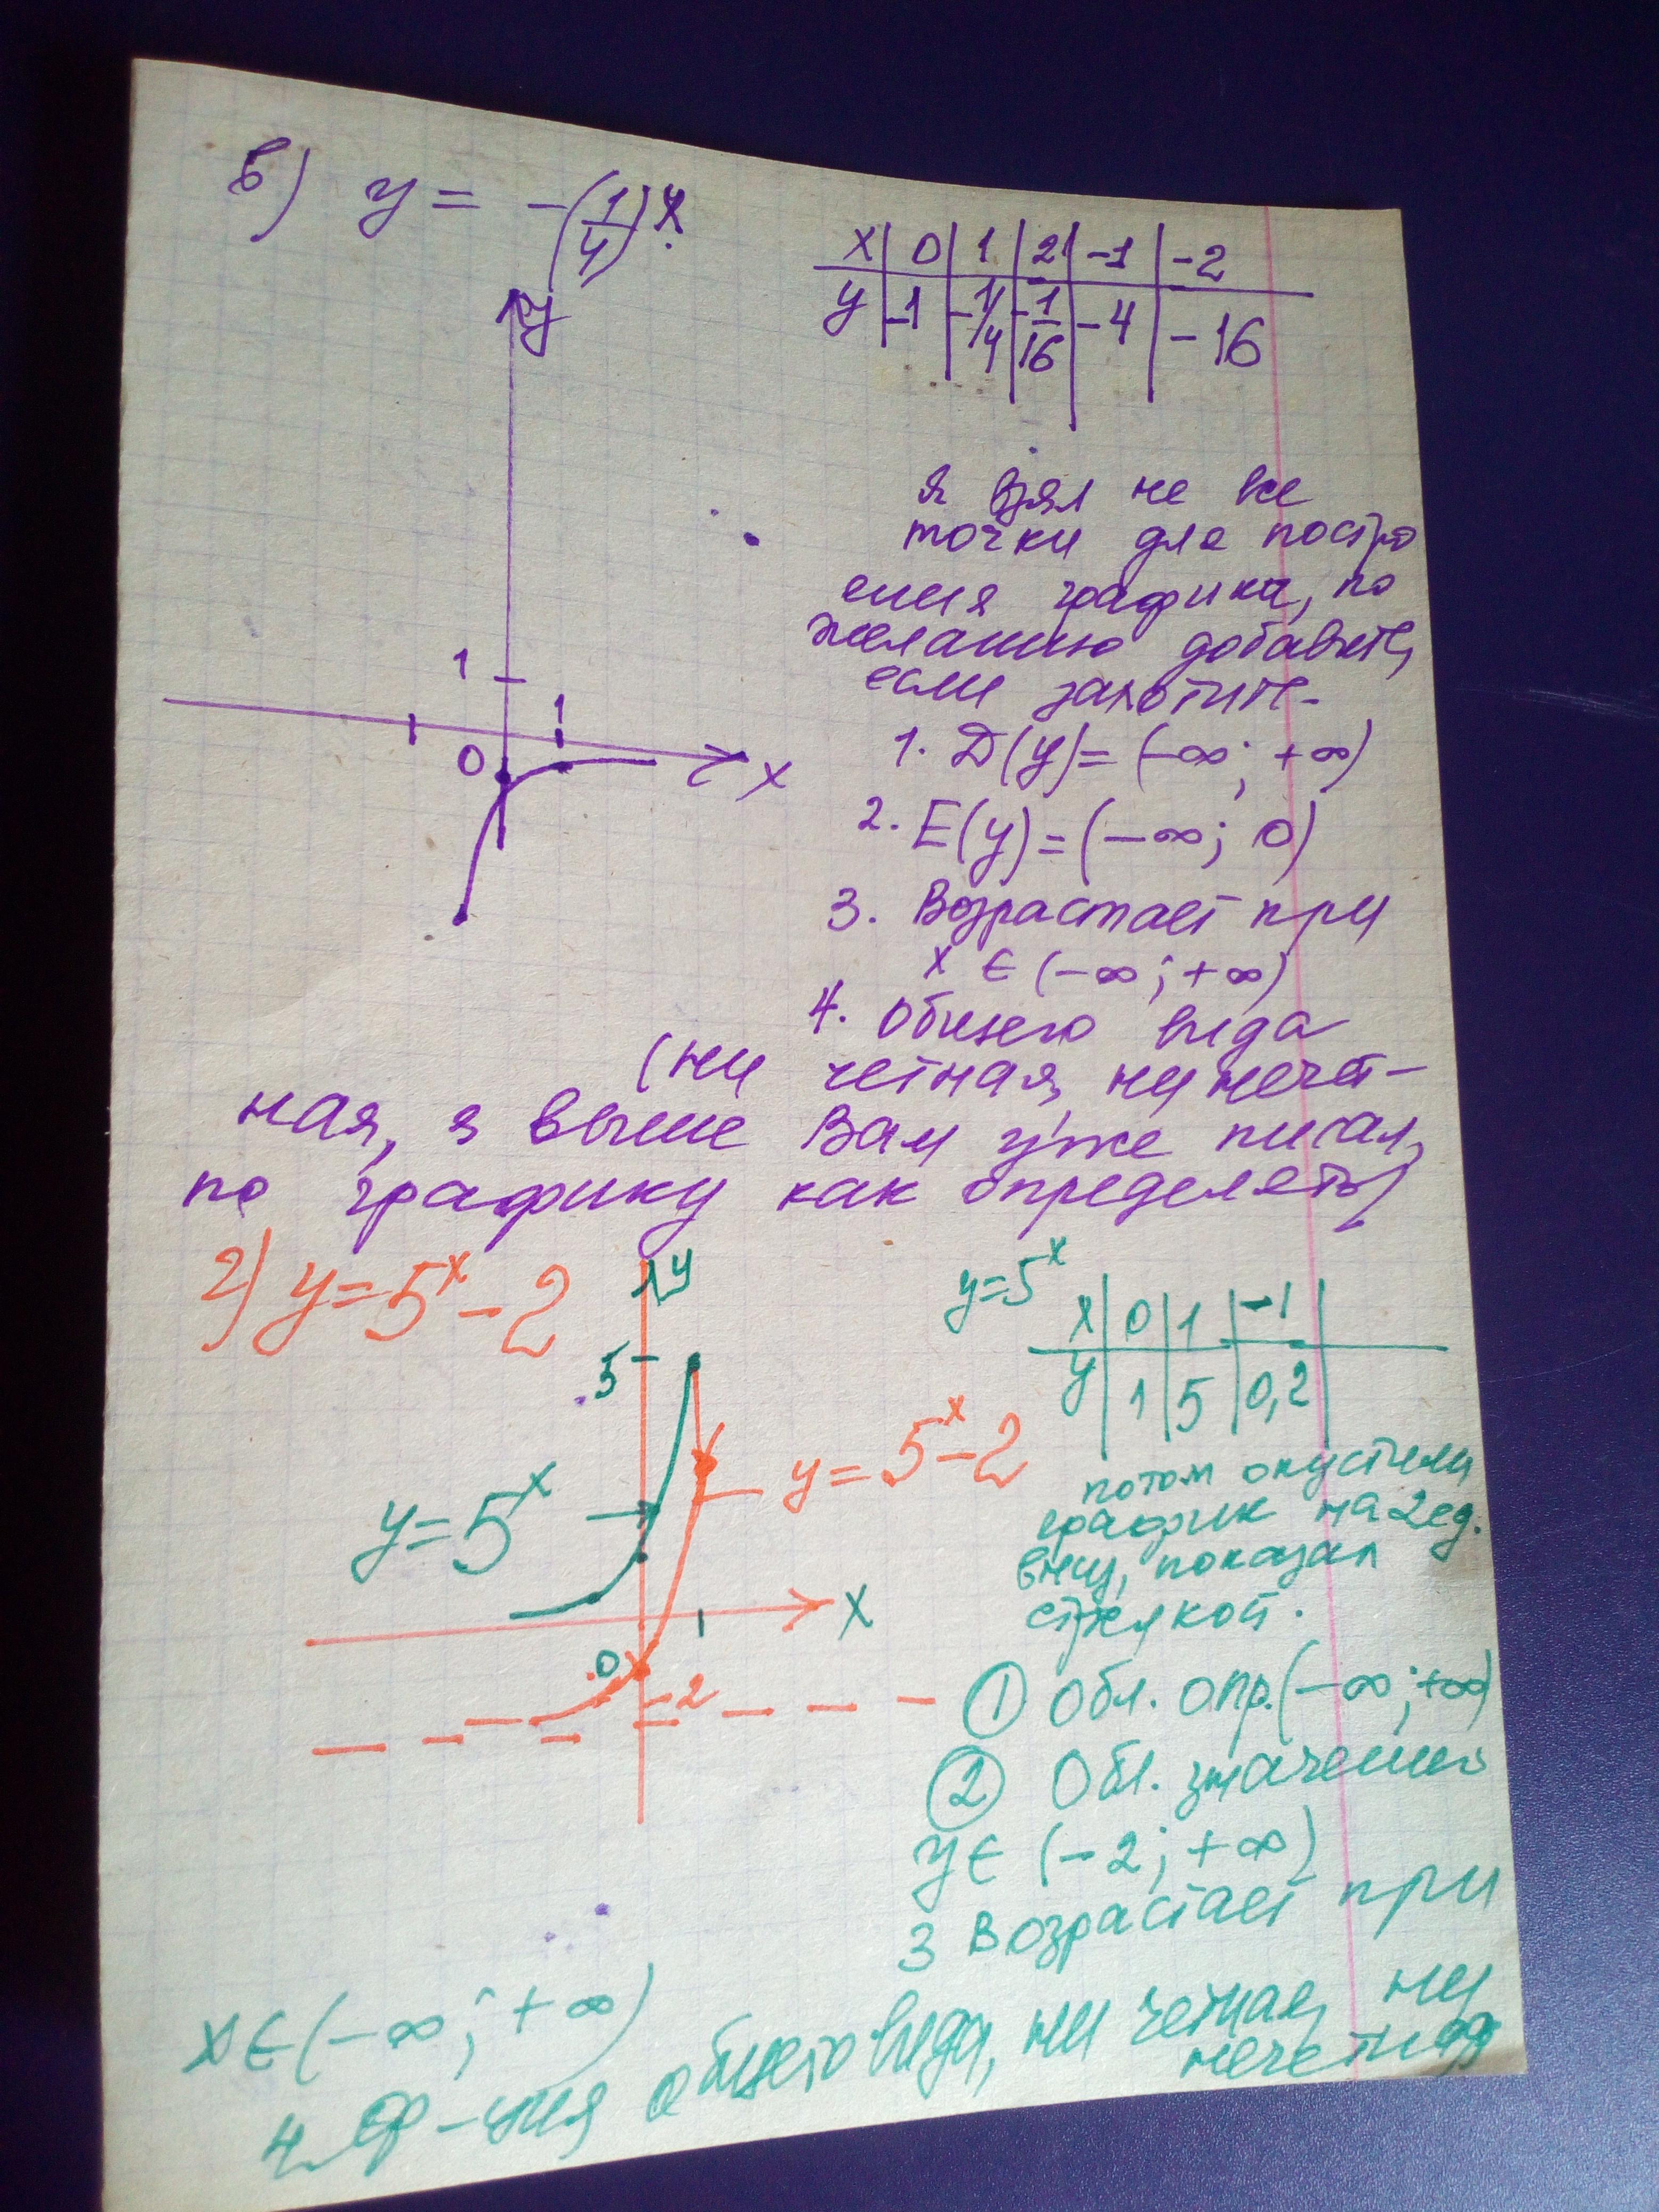 б) y = -(1/4)^x
x 0 1 2 -1 -2
y -1 -1/4 -1/16 -4 -16
y
1
1
0
x
я взял не все
точки для постро
ения графика, по
желанию добавьте,
если захотите.
1. D(y)= (-∞; +∞)
2. E(y)=(-∞; 0)
3. Возрастает при
x ∈ (-∞; +∞)
4. Общего вида
(ни четная, ни нечет-
ная, я выше Вам уже писал,
по графику как определять)
г) y=5^x-2
y
5
y=5^x
y=5^x-2
x
1
0
-2
y=5^x
x 0 1 -1
y 1 5 0,2
потом опустили
график на 2 ед.
вниз, показал
стрелкой.
① Обл. опр.(-∞;+∞)
② Обл. значений
y∈ (-2; +∞)
3 Возрастает при
x∈(-∞; +∞)
4. ф-ция общего вида, ни четная, ни
нечетная